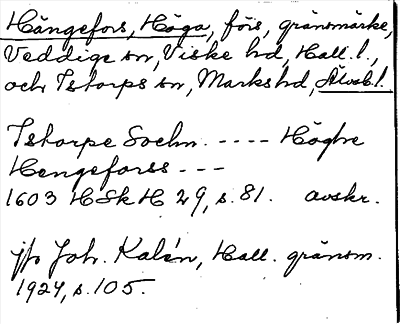 Hängefors, Höga, förs, gränsmärke,
Veddige sn, Viske hd, Hall. l.,
och Istorps sn, Marks hd, Älvsb. l.
Istorpe Sochn. ---- Höghe
Hengeforss ---
1603 HSkH 29, s. 81. avskr.
jfr Joh. Kalén, Hall. gränsm.
1924, s. 105.